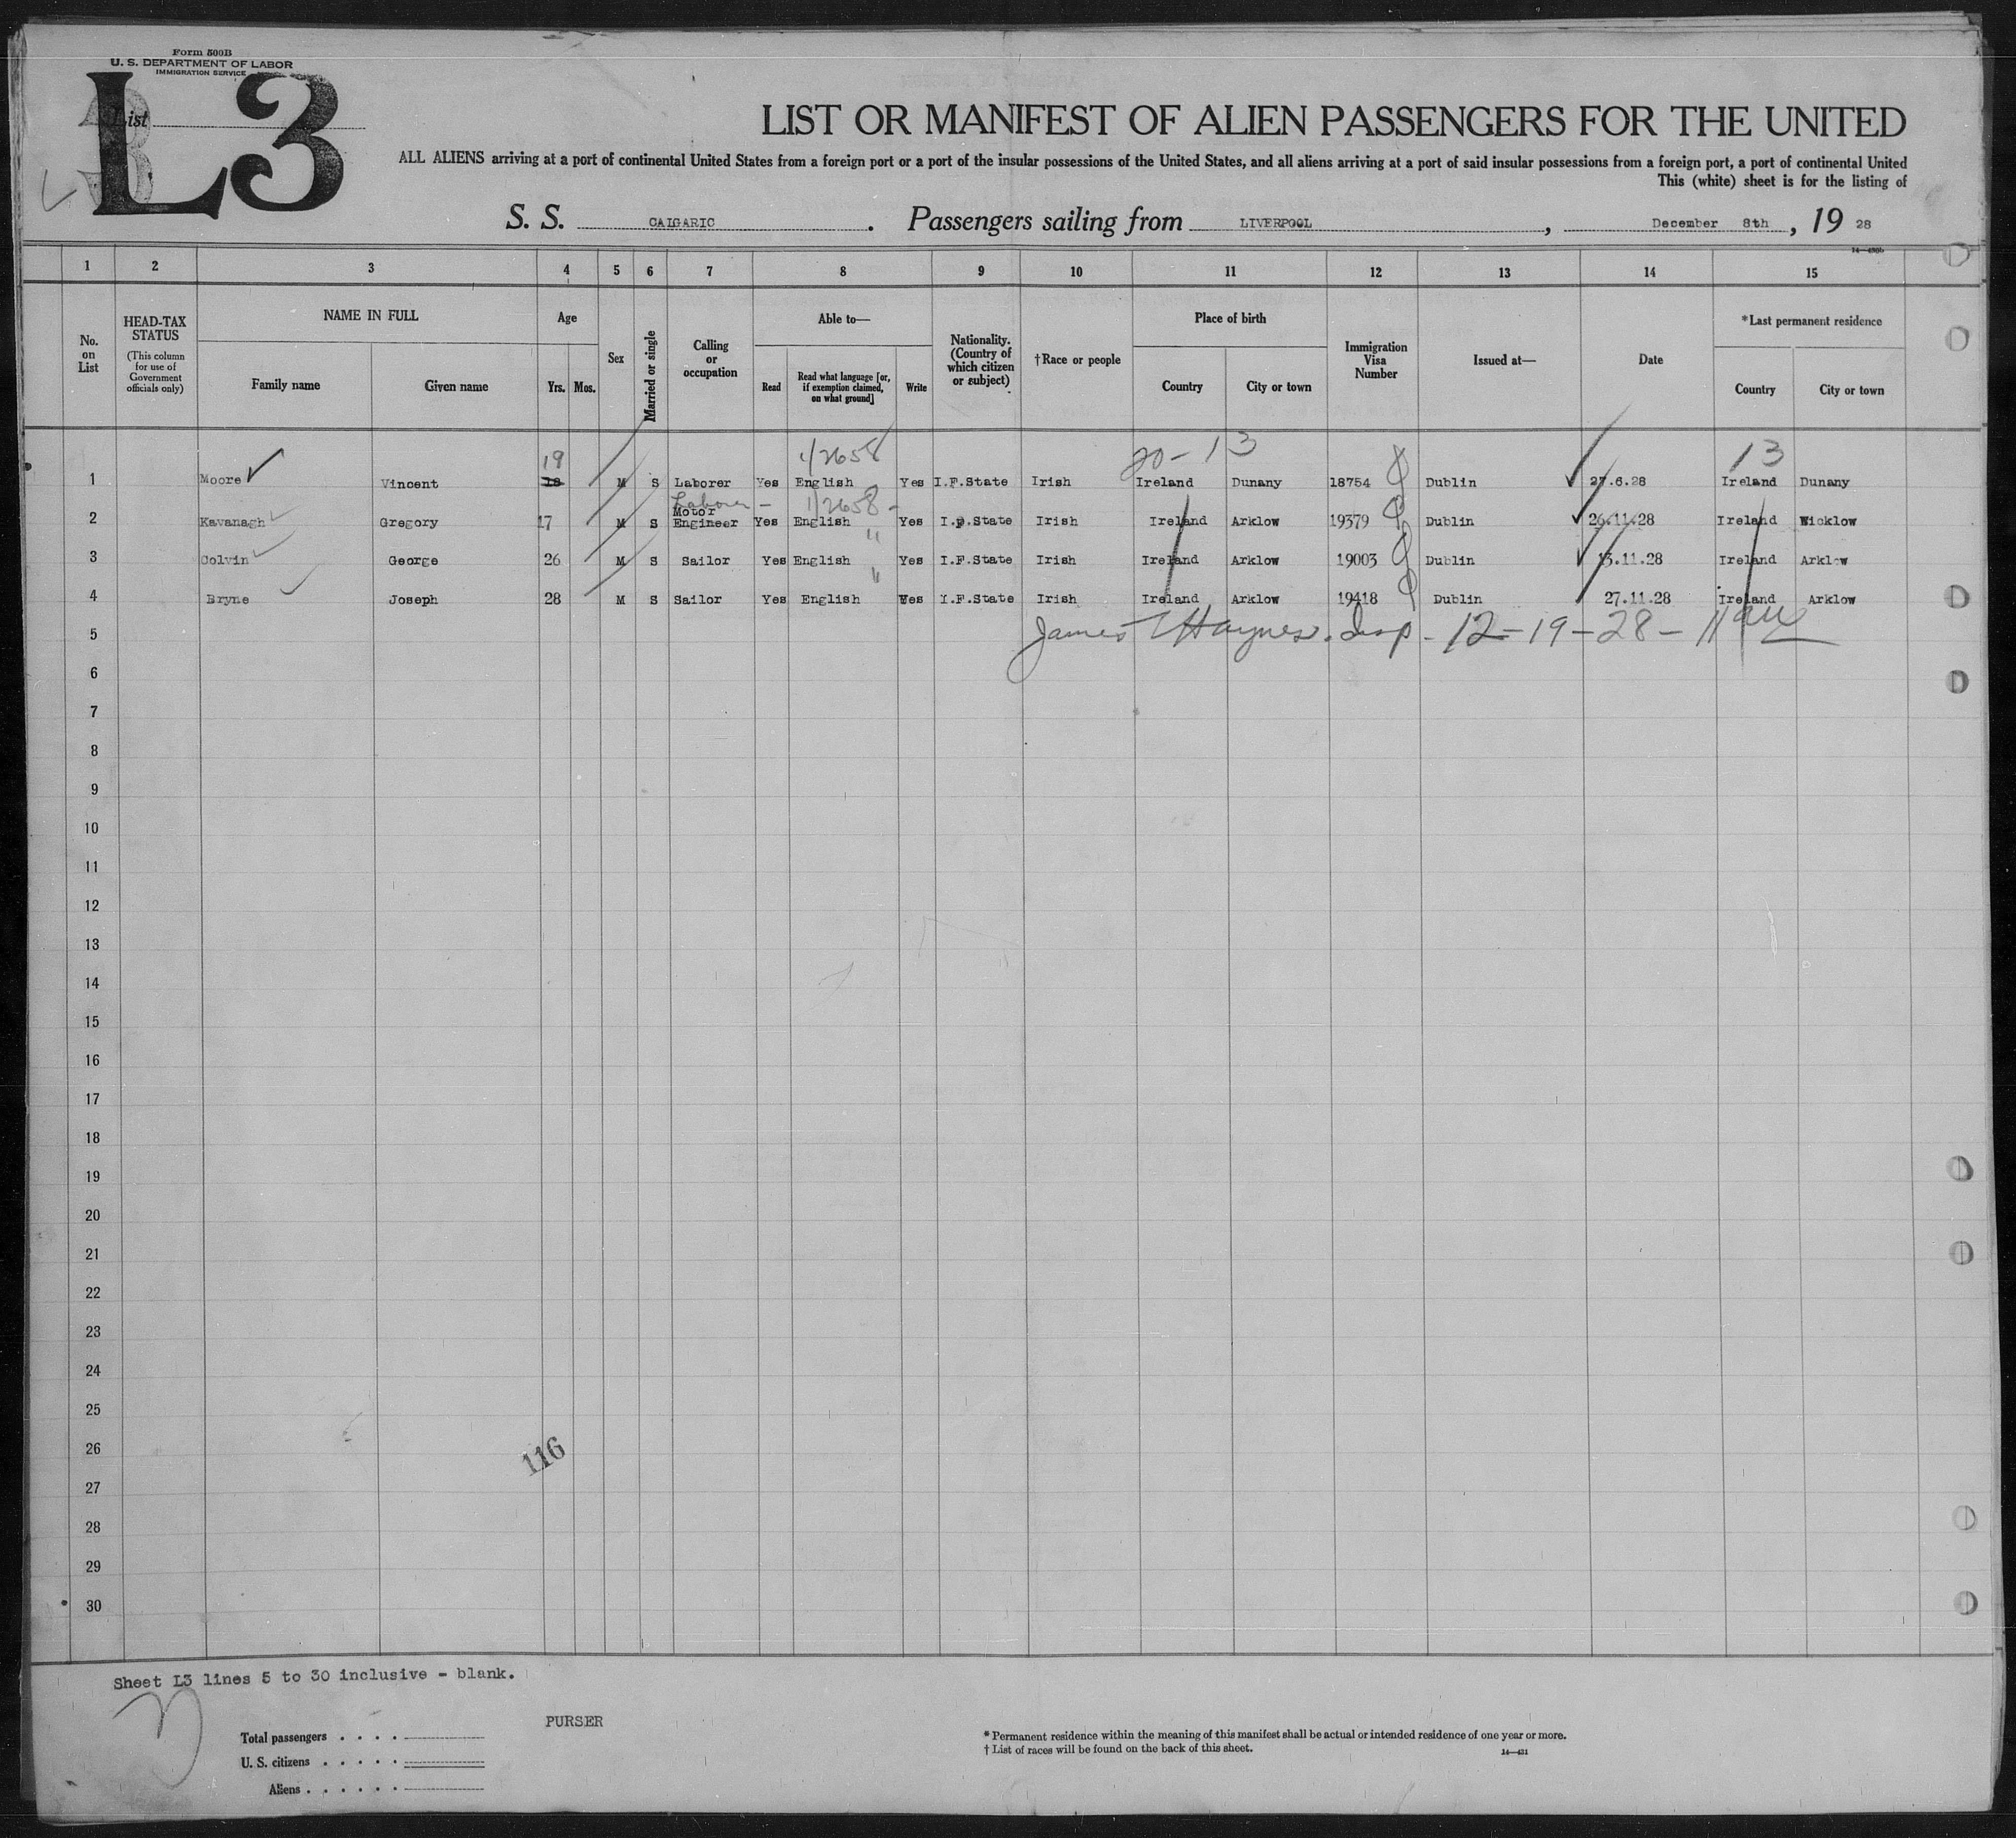 Form 500B
U. S. DEPARTMENT OF LABOR
IMMIGRATION SERVICE
List
L3
LIST OR MANIFEST OF ALIEN PASSENGERS FOR THE UNITED
ALL ALIENS arriving at a port of continental United States from a foreign port or a port of the insular possessions of the United States, and all aliens arriving at a port of said insular possessions from a foreign port, a port of continental United
This (white) sheet is for the listing of
S. S. CALGARIC. Passengers sailing from LIVERPOOL, December 8th, 19 28
1 2 3 4 5 6 7 8 9 10 11 12 13 14 15
No. on List
HEAD-TAX STATUS
(This column for use of Government officials only)
NAME IN FULL
Family name Given name
Age
Yrs. Mos.
Sex
Married or single
Calling or occupation
Able to—
Read
Read what language [or, if exemption claimed, on what ground]
Write
Nationality. (Country of which citizen or subject)
†Race or people
Place of birth
Country City or town
Immigration Visa Number
Issued at—
Date
*Last permanent residence
Country City or town
19 1/2658 20-13 13
1 Moore Vincent 18 M S Laborer Yes English Yes I.F.State Irish Ireland Dunany 18754 Dublin 27.6.28 Ireland Dunany
Laborer - 1/2658 -
2 Kavanagh Gregory 17 M S Motor Engineer Yes English Yes I.F.State Irish Ireland Arklow 19379 Dublin 26.11.28 Ireland Wicklow
"
3 Colvin George 26 M S Sailor Yes English Yes I.F.State Irish Ireland Arklow 19003 Dublin 13.11.28 Ireland Arklow
"
4 Bryne Joseph 28 M S Sailor Yes English Yes I.F.State Irish Ireland Arklow 19418 Dublin 27.11.28 Ireland Arklow
5 James T Haynes. Insp - 12-19-28-
6
7
8
9
10
11
12
13
14
15
16
17
18
19
20
21
22
23
24
25
26
116
27
28
29
30
Sheet L3 lines 5 to 30 inclusive - blank.
PURSER
Total passengers
U. S. citizens
Aliens
* Permanent residence within the meaning of this manifest shall be actual or intended residence of one year or more.
† List of races will be found on the back of this sheet.
14—431